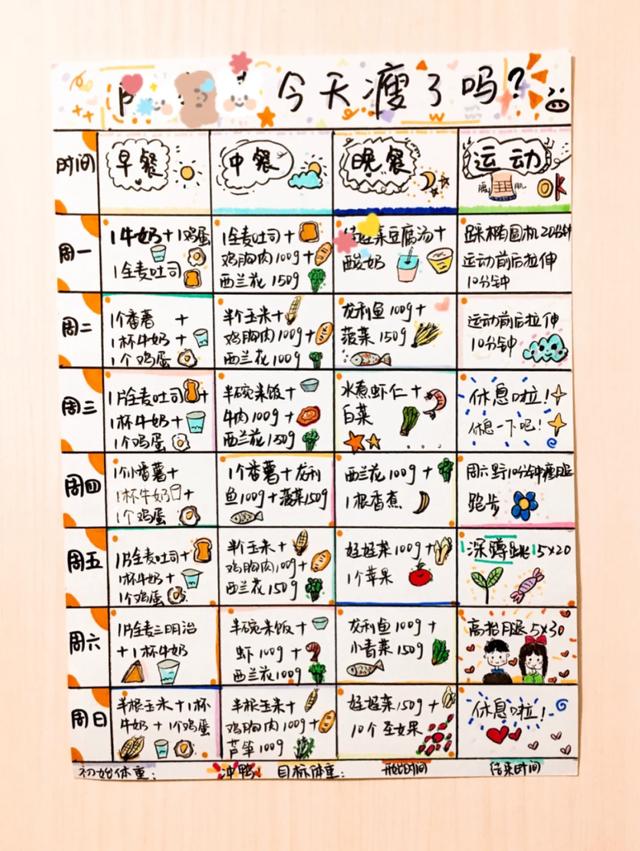 今天瘦了吗?
时间
早餐
中餐
晚餐
运动
OK
周一
1牛奶+1鸡蛋
1全麦吐司
1全麦吐司+
鸡胸肉100g+
西兰花150g
菜豆腐汤+
酸奶
踩椭圆机20分钟
运动前后拉伸
10分钟
周二
1个番薯+
1杯牛奶+
1个鸡蛋
半个玉米+
鸡胸肉100g+
西兰花100g
龙利鱼100g+
菠菜150g
运动前后拉伸
10分钟
周三
1片全麦吐司+
1杯牛奶+
1个鸡蛋
半碗米饭+
牛肉100g+
西兰花150g
水煮虾仁+
白菜
休息啦!
休息一下吧!
周四
1个小番薯+
1杯牛奶+
1个鸡蛋
1个番薯+龙利
鱼100g+菠菜150g
西兰花100g+
1根香蕉
周六野10分钟瘦腿
跑步
周五
1片全麦吐司+
1杯牛奶+
1个鸡蛋
半个玉米+
鸡胸肉100g+
西兰花150g
娃娃菜100g+
1个苹果
深蹲跳15×20
周六
1片全麦三明治
+1杯牛奶
半碗米饭+
虾100g+
西兰花100g
龙利鱼100g+
小青菜150g
高抬腿5×30
周日
半根玉米+1杯
牛奶+1个鸡蛋
半根玉米+
鸡胸肉100g+
芦笋100g
娃娃菜150g+
10个圣女果
休息啦!
初始体重:
冲鸭
目标体重:
开始时间
结束时间